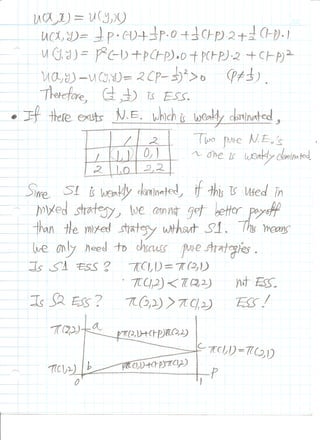 u(x,x) = u(y,x)
u(x,y) = ½p·(-1)+½p·0+½(1-p)·2+½(1-p)·1
u(y,y) = p²(-1)+p(1-p)·0+p(1-p)·2+(1-p)²
u(x,y)-u(y,y) = 2(p-½)²>0 (p≠½).
Therefore, (½,½) is ESS.
• If there exists N.E. which is weakly dominated,
1 2
1 1,1 0,1
2 1,0 2,2
Two pure N.E.'s
~ one is weakly dominated
Since S1 is weakly dominated, if this is used in
mixed strategy, we cannot get better payoff
than the mixed strategy without S1. This means
we only need to discuss pure strategies.
Is S1 ESS? π(1,1)=π(2,1)
π(1,2)<π(2,2) not ESS.
Is S2 ESS? π(2,2)>π(1,2) ESS!
π(2,2) a
pπ(2,1)+(1-p)π(2,2)
c π(1,1)=π(2,1)
π(1,2) b
pπ(1,1)+(1-p)π(1,2)
0 1 P